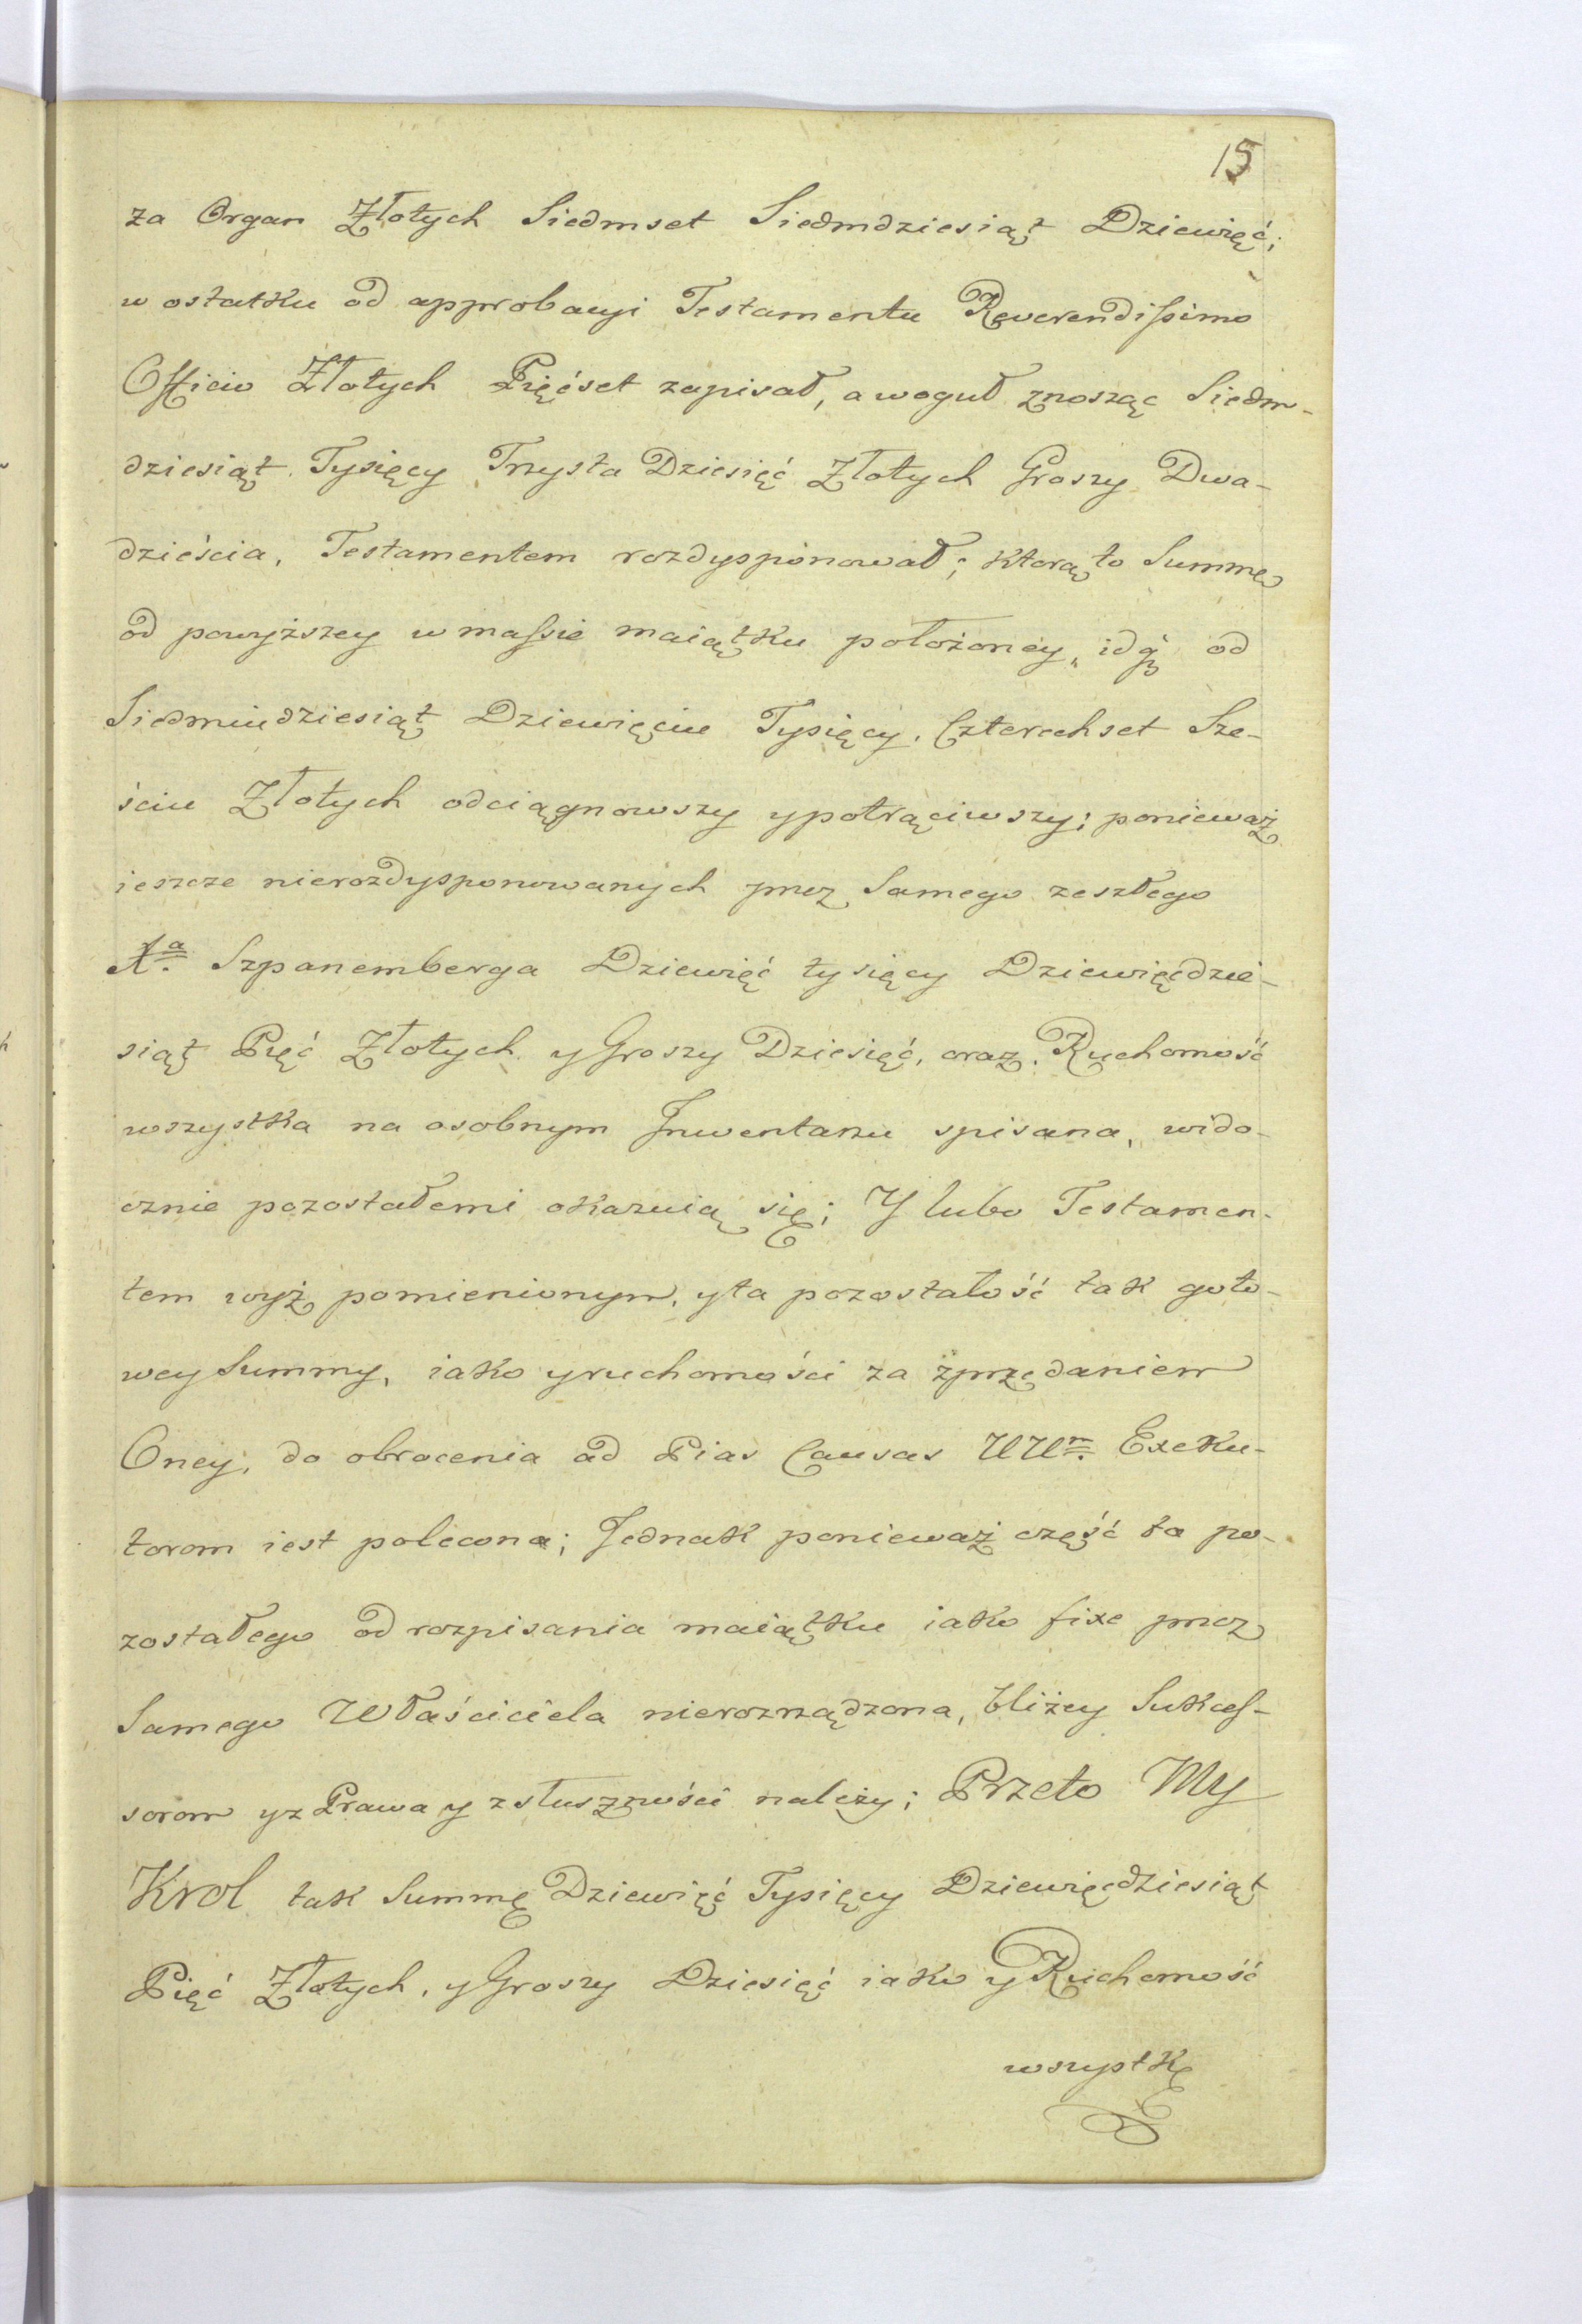 15
za Organ Złotych Siedmset Siedmdziesiąt Dziewięć;
w ostatku od approbacyi Testamentu Reverendissimo
Officio Złotych Pięćset zapisał, a woguł znosząc Siedm-
dziesiąt Tysięcy Trzysta Dziesięć Złotych Groszy Dwa-
dzieścia, Testamentem rozdysponował; ktorą to Summę
od powyższey w massie maiątku położoney, id ę̇ od
Siedmiudziesiąt Dziewięciu Tysięcy, Czterechset Sze-
ściu Złotych odciągnowszy y potrąciwszy; ponieważ
ieszcze nierozdysponowanych przez Samego zeszłego
Xa. Szpanemberga Dziewięć tysięcy Dziewięćdzie-
siąt Pięć Złotych y Groszy Dziesięć, oraz Ruchomość
wszystka na osobnym Inwentarzu spisana, wido-
cznie pozostałemi okazuią się; Y lubo Testamen-
tem wyż pomienionym, y ta pozostałość tak goto-
wey Summy, iako y ruchomości za zprzedaniem
Oney, do obrocenia ad Pias Causas UUm. Exeku-
torom iest polecona; Jednak ponieważ część ta po-
zostałego od rozpisania maiątku iako fixe przez
Samego Właściciela nierozrządzona, bliżey Sukces-
sorom y z Prawa y z słuszności należy; Przeto My
Krol tak Summę Dziewięć Tysięcy Dziewięćdziesiąt
Pięć Złotych, y Groszy Dziesięć iako y Ruchomość
wszystkę